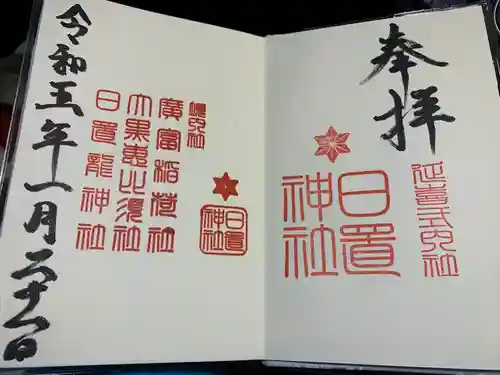 奉拝
延喜式内社
日置
神社
境内社
廣富稲荷社
大黒恵比須社
日置龍神社
日置
神社
令和五年一月二十一日